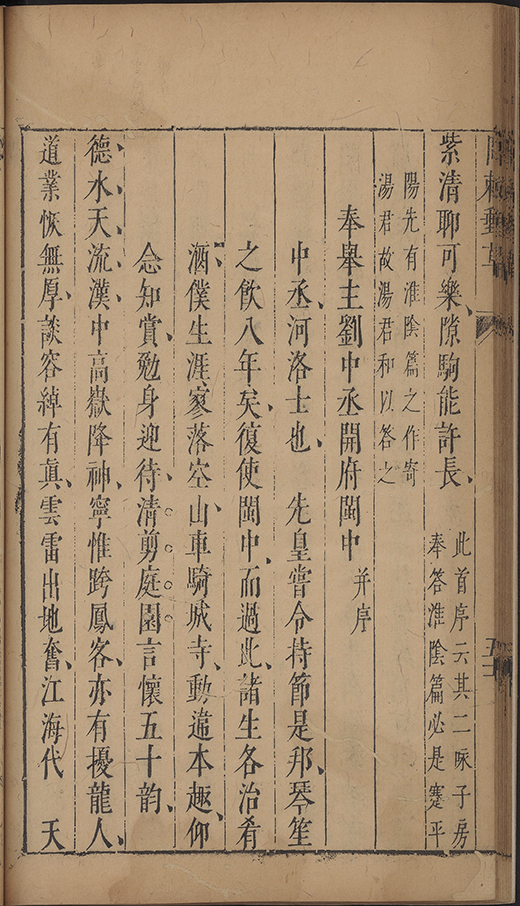 紫清聊可樂、隙駒能許長、
此首序云其二咏子房
奉答淮陰篇必是蹇平
陽先有淮陰篇之作寄
湯君故湯君和以答之
奉舉主劉中丞開府閩中 并序
中丞、河洛士也、 先皇嘗令持節是邦、琴笙
之飲八年矣、復使閩中、而過此、諸生各治肴
酒、僕生涯寥落空山、車騎城寺、動違本趣、仰
念知賞、勉身迎待、清剪庭園、言懷五十韵、
德水天流漢中高嶽降神、寧惟跨鳳客、亦有擾龍人、
道業恢無厚、談容綽有眞、雲雷出地奮、江海代 天